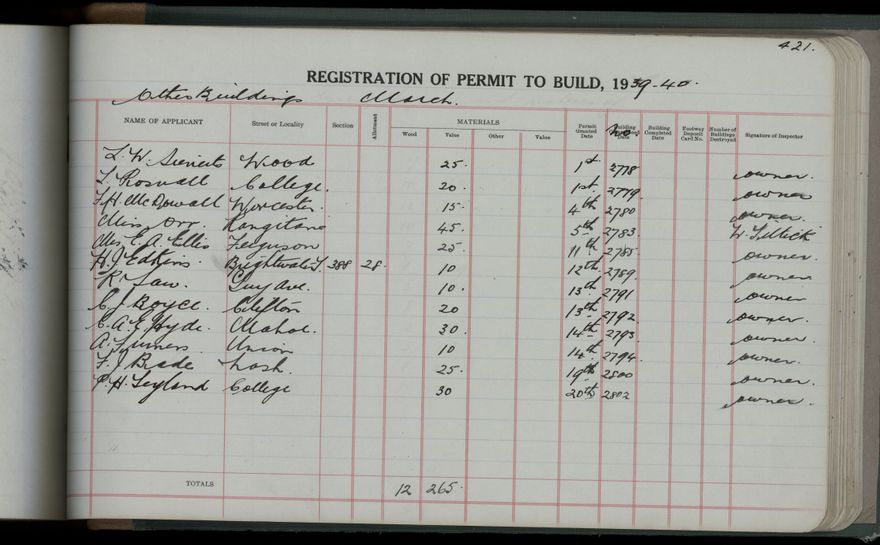 421.
REGISTRATION OF PERMIT TO BUILD, 1939-40.
Other Buildings March.
NAME OF APPLICANT Street or Locality Section Allotment MATERIALS Permit Granted Date Building Date No Building Completed Date Footway Deposit Card No. Number of Buildings Destroyed Signature of Inspector
Wood Value Other Value
L. W. Wood 25. 1st. 2778 owner.
L. Rosvall College. 20. 1st. 2779 owner
F. H. McDowall Worcester. 15. 4th 2780 owner.
Miss Orr. Rangitane 45. 5th 2783 W.
Mrs. E. A. Ellis Ferguson 25. 11th 2785 owner.
H. J. Edkins. Brightwater T. 388 28. 10 12th 2789. owner
R. Law. Guy Ave. 10. 13th 2791 owner
C. J. Boyce. Clifton 20 13th 2792 owner.
C. A. E. Hyde. Mahoe. 30. 14th 2793 owner.
A. Union 10 14th 2794 owner.
F. J. Brade Losh. 25. 19th 2800 owner.
P. H. Leyland College 30 20th 2802 owner.
TOTALS 12 265.